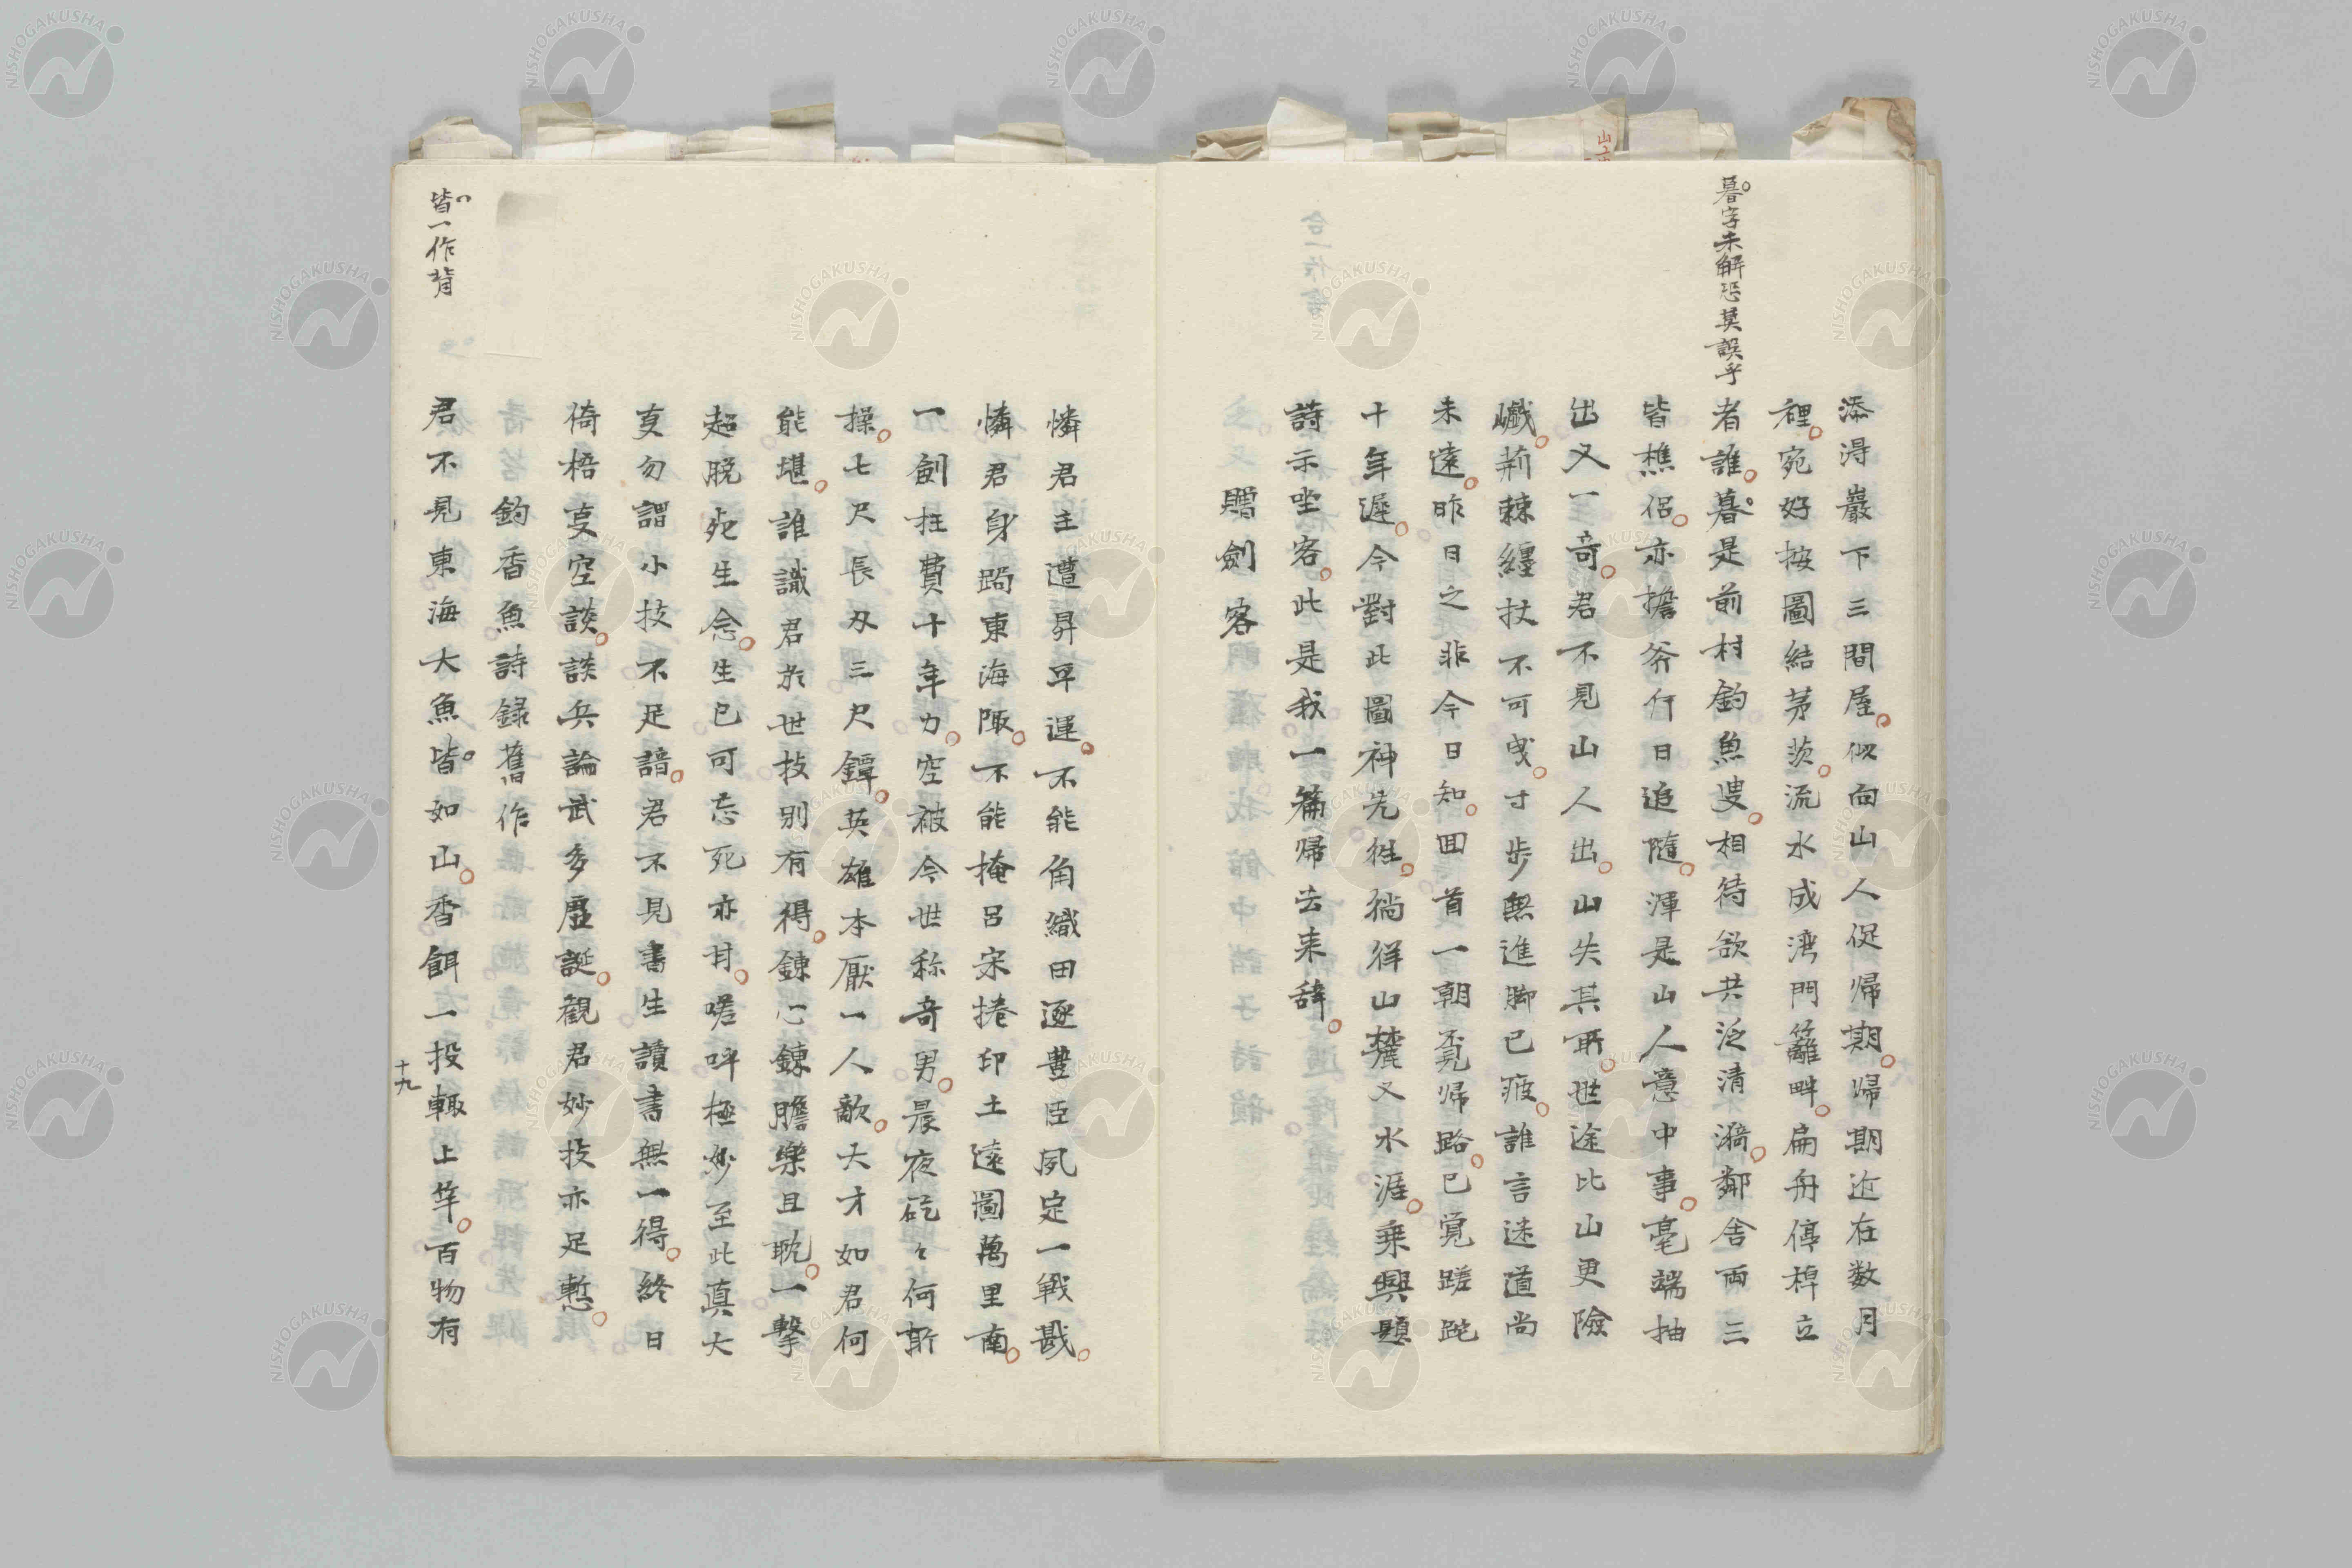 暮字未解恐莫誤乎
添得巖下三間屋似向山人促帰期帰期近在数月
裡宛好按圖結茅茨流水成湾門籬畔扁舟停棹立
者誰暮是前村釣魚叟相待欲共泛清漪鄰舎両三
皆樵侶亦擔斧斤日追隨渾是山人意中事毫端抽
出又一奇君不見山人出山失其所世途比山更險
巇荊棘纏杖不可曳寸步無進脚已疲誰言迷道尚
未遠昨日之非今日知囬首一朝覓帰路已覚蹉跎
十年遲今對此圖神先徃徜徉山麓又水涯乗興題
詩示坐客此是我一篇帰去来辞
贈劍客
憐君主遭昇平運不能角織田逐豊臣夙定一戦戡
憐君身跼東海陬不能掩呂宋捲印土遠圖萬里南
一劍狂費十年力空被今世称奇男晨夜矻々何所
操七尺長刄三尺鐔英雄本厭一人敵大才如君何
能堪誰識君於世技別有得錬心錬膽樂且耽一擊
超脱死生念生已可忘死亦甘嗟呼極妙至此真大
叓勿謂小技不足諳君不見書生讀書無一得終日
倚梧叓空談談兵論武多虛誕観君妙技亦足慙
釣香魚詩録舊作
皆一作背
君不見東海大魚皆如山香餌一投輙上竿百物有
十九
NISHOGAKUSHA